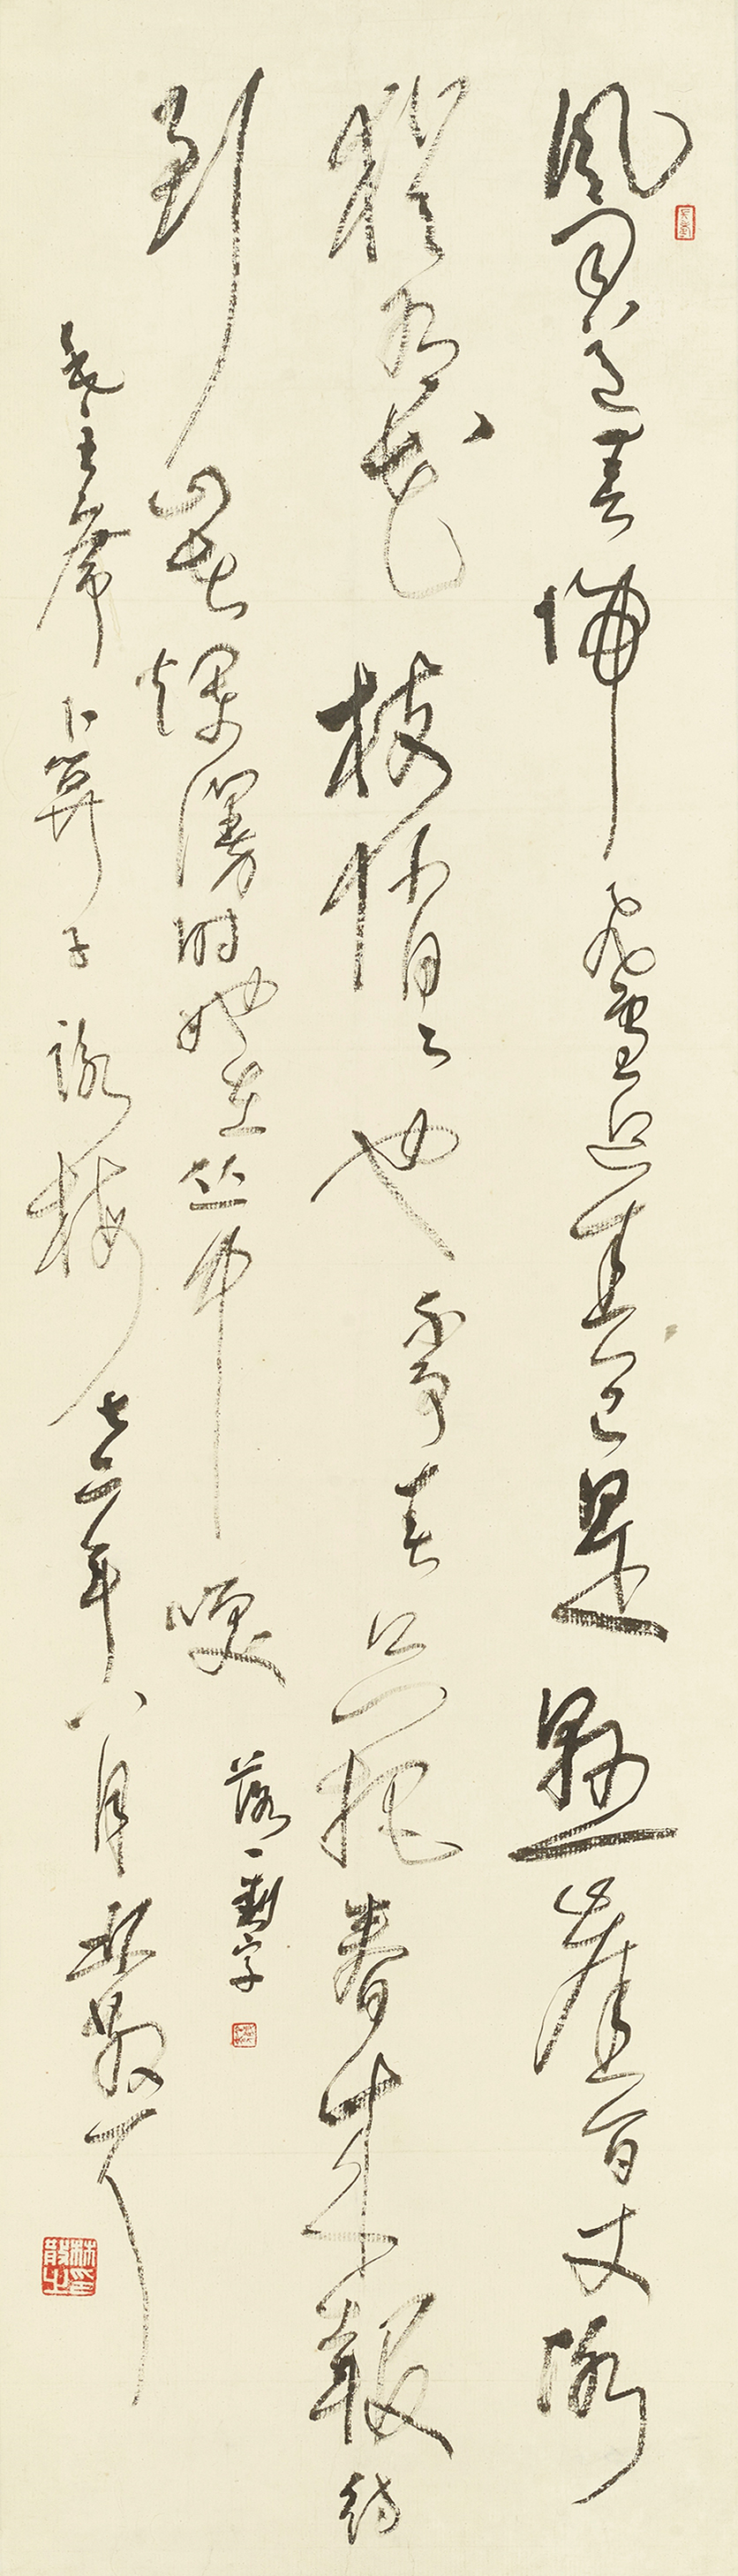 風雨送春歸飛雪迎春已是懸崖百丈冰
猶有花枝俏〻也不爭春只把春來報待
到山花爛漫时她在丛中咲 落一到字
毛主席卜算子詠梅 七二年八月 林散耳
林散之印